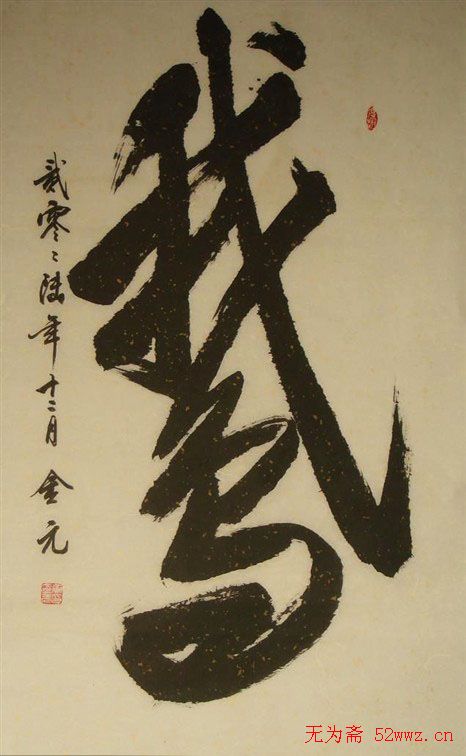 鵞
贰零零陆年十二月 金元
无为斋 52wwz.cn